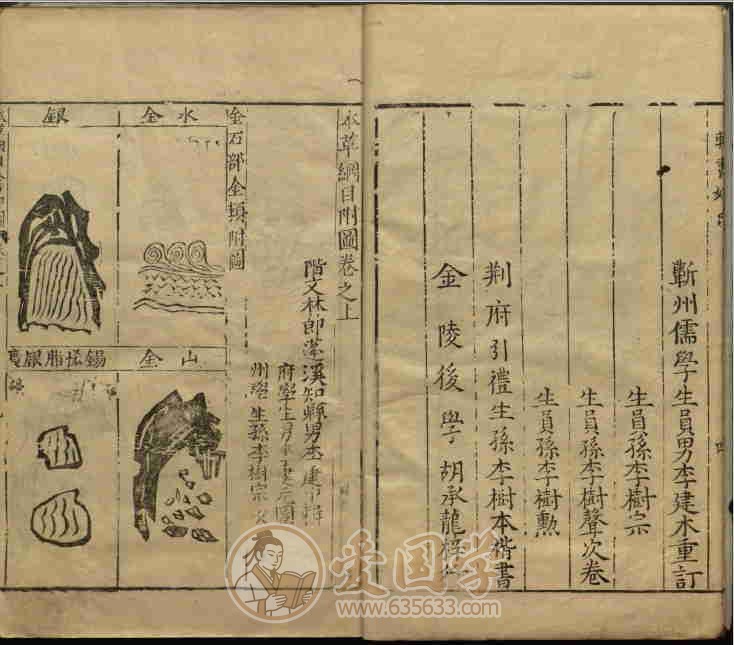 蘄州儒學生員男李建木重訂
生員孫李樹宗
生員孫李樹聲次卷
生員孫李樹勳
荆府引禮生孫李樹本楷書
金陵後學胡承龍梓行
本草綱目附圖卷之上
階文林郎蓬溪知縣男李建
府學生男李建元圖
州學生孫李樹宗
金石部金類附圖
水金
山金
銀
錫悋脂銀
爱国学
www.635633.com